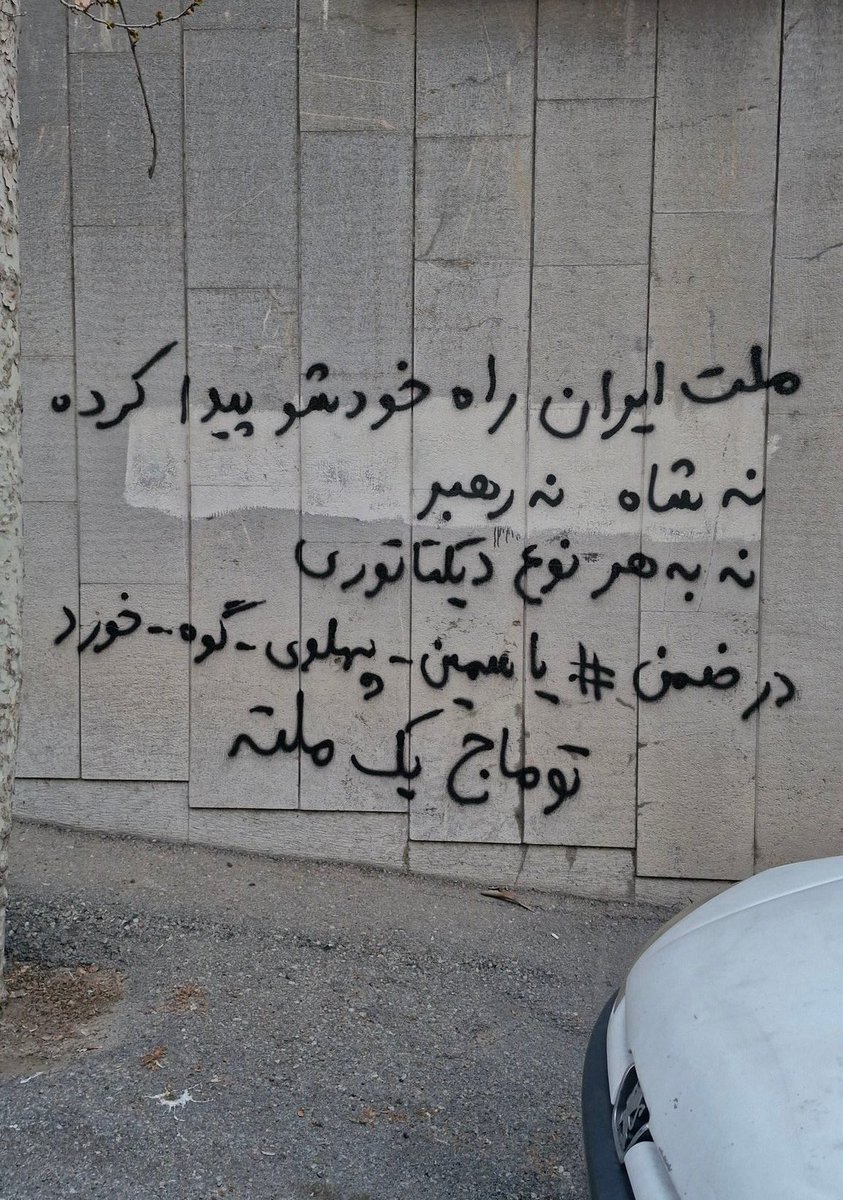 ملت ایران راه خودشو پیدا کرده
نه شاه نه رهبر
نه به هر نوع دیکتاتوری
در ضمن # یاسمین - پهلوی - گوه - خورد
توماج یک ملته